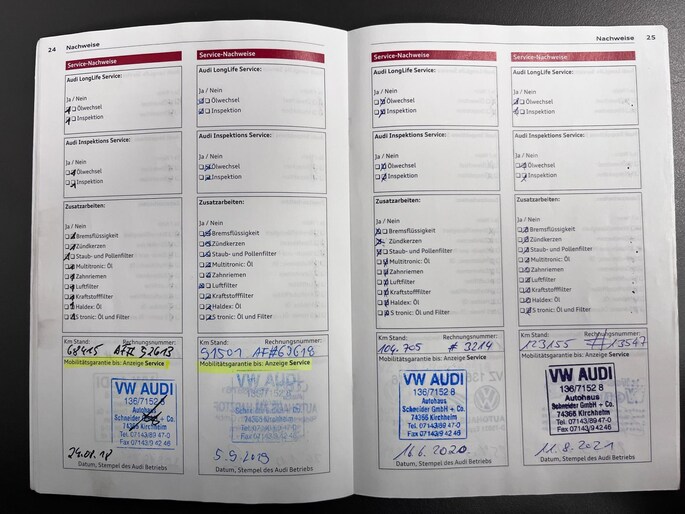 24 Nachweise
Service-Nachweise
Audi LongLife Service:
Ja / Nein
Ölwechsel
Inspektion
Audi Inspektions Service:
Ja / Nein
Ölwechsel
Inspektion
Zusatzarbeiten:
Ja / Nein
Bremsflüssigkeit
Zündkerzen
Staub- und Pollenfilter
Multitronic: Öl
Zahnriemen
Luftfilter
Kraftstofffilter
Haldex: Öl
S tronic: Öl und Filter
Km Stand: Rechnungsnummer:
68415 AFF 52613
Mobilitätsgarantie bis: Anzeige Service
VW AUDI
136/7152 8
Autohaus
Schneider GmbH + Co.
74366 Kirchheim
Tel. 07143/89 47-0
Fax 07143/9 42 46
24.01.18
Datum, Stempel des Audi Betriebs
Service-Nachweise
Audi LongLife Service:
Ja / Nein
Ölwechsel
Inspektion
Audi Inspektions Service:
Ja / Nein
Ölwechsel
Inspektion
Zusatzarbeiten:
Ja / Nein
Bremsflüssigkeit
Zündkerzen
Staub- und Pollenfilter
Multitronic: Öl
Zahnriemen
Luftfilter
Kraftstofffilter
Haldex: Öl
S tronic: Öl und Filter
Km Stand: Rechnungsnummer:
91501 AF#63618
Mobilitätsgarantie bis: Anzeige Service
VW AUDI
136/7152 8
Autohaus
Schneider GmbH + Co.
74366 Kirchheim
Tel. 07143/89 47-0
Fax 07143/9 42 46
5.9.2019
Datum, Stempel des Audi Betriebs
Nachweise 25
Service-Nachweise
Audi LongLife Service:
Ja / Nein
Ölwechsel
Inspektion
Audi Inspektions Service:
Ja / Nein
Ölwechsel
Inspektion
Zusatzarbeiten:
Ja / Nein
Bremsflüssigkeit
Zündkerzen
Staub- und Pollenfilter
Multitronic: Öl
Zahnriemen
Luftfilter
Kraftstofffilter
Haldex: Öl
S tronic: Öl und Filter
Km Stand: Rechnungsnummer:
104.705 # 3214
Mobilitätsgarantie bis: Anzeige Service
VW AUDI
136/7152 8
Autohaus
Schneider GmbH + Co.
74366 Kirchheim
Tel. 07143/89 47-0
Fax 07143/9 42 46
16.6.2020
Datum, Stempel des Audi Betriebs
Service-Nachweise
Audi LongLife Service:
Ja / Nein
Ölwechsel
Inspektion
Audi Inspektions Service:
Ja / Nein
Ölwechsel
Inspektion
Zusatzarbeiten:
Ja / Nein
Bremsflüssigkeit
Zündkerzen
Staub- und Pollenfilter
Multitronic: Öl
Zahnriemen
Luftfilter
Kraftstofffilter
Haldex: Öl
S tronic: Öl und Filter
Km Stand: Rechnungsnummer:
123155 #13547
Mobilitätsgarantie bis: Anzeige Service
VW AUDI
136/7152 8
Autohaus
Schneider GmbH + Co.
74366 Kirchheim
Tel. 07143/89 47-0
Fax 07143/9 42 46
11.8.2021
Datum, Stempel des Audi Betriebs